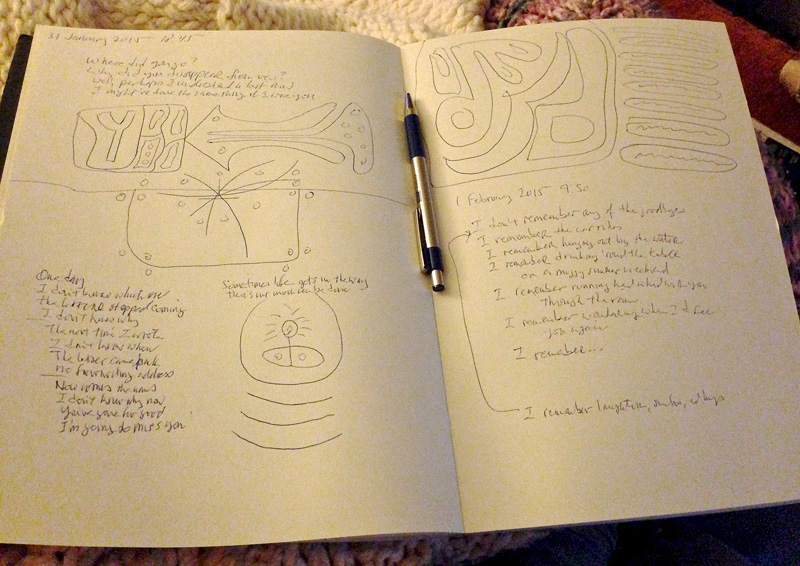 31 January 2015 18:45
Where did you go?
Why did you disappear from view?
Well, perhaps I
I might've done the same thing if I were you
One day
I don't know which one
the letters stopped coming
I don't know why
The next time I wrote
I don't know when
The letter came back
no forwarding address
Now comes the news
I don't know why now
You've gone for good
I'm going to miss you
Sometimes life gets in the way
There's not much can be done
1 February 2015 9:50
I don't remember any of the goodbyes
I remember the car rides
I remember hanging out by the water
I remember drinking 'round the table
on a muggy summer weekend
I remember running head with you
through the rain
I remember wondering when I'd see
you again
I remember...
I remember laughter, smiles, and hugs